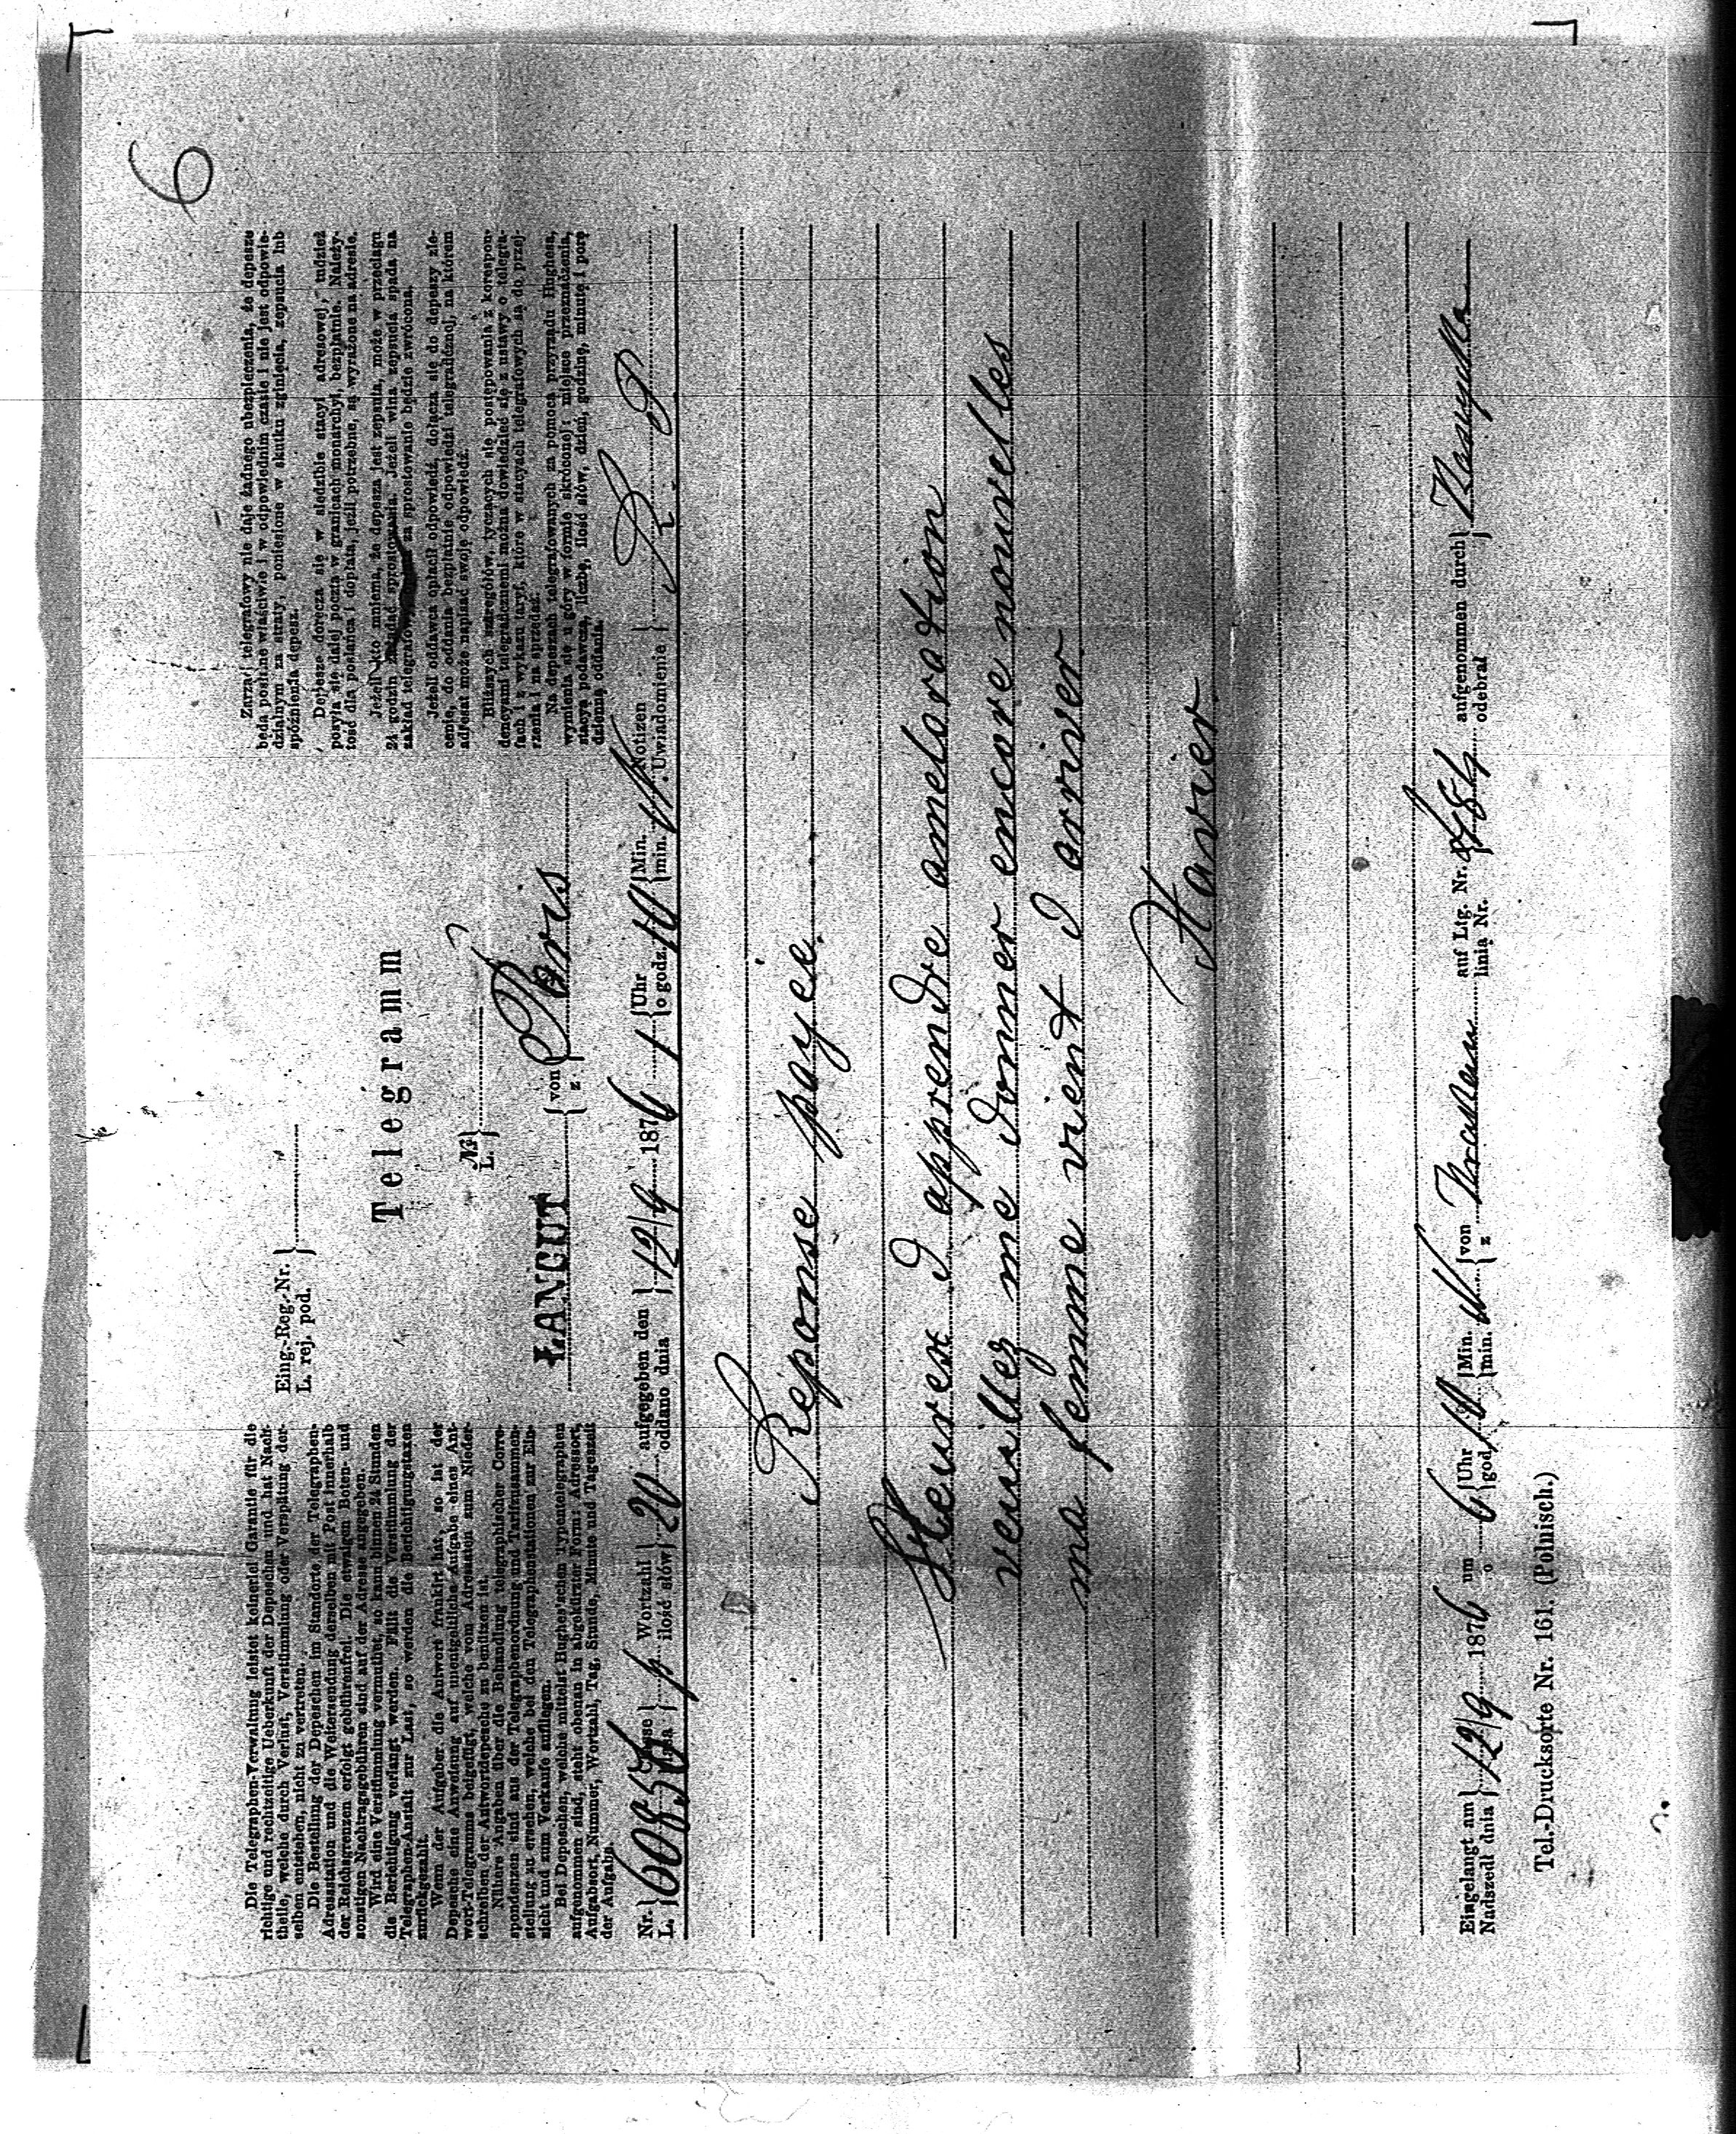 6
Die Telegraphen-Verwaltung leistet keinerlei Garantie für die
richtige und rechtzeitige Ueberkunft der Depeschen und hat Nach-
theile, welche durch Verlust, Verstümmlung oder Verspätung der-
selben entstehen, nicht zu vertreten.
Die Bestellung der Depeschen im Standorte der Telegraphen-
Adressstation und die Weitersendung derselben mit Post innerhalb
der Reichsgrenzen erfolgt gebührenfrei. Die etwaigen Boten- und
sonstigen Nachtragsgebühren sind auf der Adresse angegeben.
Wird eine Verstümmlung vermuthet, so kann binnen 24 Stunden
die Berichtigung verlangt werden. Fällt die Verstümmlung der
Telegraphen-Anstalt zur Last, so werden die Berichtigungstaxen
zurückgezahlt.
Wenn der Aufgeber die Antwort frankirt hat, so ist der
Depesche eine Anweisung auf unentgeltliche Aufgabe eines Ant-
wort-Telegramms beigefügt, welche vom Adressaten zum Nieder-
schreiben der Antwortdepesche zu benützen ist.
Nähere Angaben über die Behandlung telegraphischer Corre-
spondenzen sind aus der Telegraphenordnung und Tarifzusammen-
stellung zu ersehen, welche bei den Telegraphenstationen zur Ein-
sicht und zum Verkaufe aufliegen.
Bei Depeschen, welche mittelst Hughes'schen Typentelegraphen
aufgenommen sind, steht obenan in abgekürzter Form: Adressort,
Aufgabsort, Nummer, Wortzahl, Tag, Stunde, Minute und Tageszeit
der Aufgabe.
Eing.-Reg.-Nr.
L. rej. pod.
Telegramm
Nr.
L.
ŁANCUT von z Paris
Zarząd telegrafowy nie daje żadnego ubezpieczenia, że depesze
będą postane właściwie i w odpowiednim czasie i nie jest odpowie-
dzialnym za straty, poniesione w skutku zginięcia, zepsucia lub
spóźnienia depesz.
Depesze doręcza się w siedzibie stacyi adresowej, tudzież
posyła się dalej pocztą w granicach monarchyi, bezpłatnie. Należy-
tość dla posłańca i dopłata, jeżli potrzebne, są wyrażone na adresie.
Jeżeli kto mniema, że depesza jest zepsuta, może w przeciągu
24 godzin zażądać sprostowania. Jeżeli wina zepsucia spada na
zakład telegrafowy, za sprostowanie będzie zwrócona.
Jeżeli oddawca opłacił odpowiedź, dołącza się do depeszy zle-
cenie, do oddania bezpłatnie odpowiedzi telegraficznej, na którem
adresat może napisać swoję odpowiedź.
Bliższych szczegółów, tyczących się postępowania z korespon-
dencyami telegraficznemi można dowiedzieć się z ustawy o telegra-
fach i z wykazu taryf, które w stacyach telegrafowych są do przej-
rzenia i na sprzedaż.
Na depeszach telegrafowanych za pomocą przyrządu Hughesa,
wymienia się u góry w formie skróconej: miejsce przeznaczenia,
stacyę podawczą, liczbę, ilość słów, dzień, godzinę, minutę i porę
dzienną oddania.
Nr. L. Wortzahl ilość słów 20 aufgegeben den oddano dnia 12/9 1876 1 Uhr o godz. 10 Min. min. Notizen Uwiadomienie R. P.
Reponse payee.
Heurex d apprendre ameloration
veuillez me donner encore nouvelles
ma femme vient d arriver.
Xavier
Eingelangt am Nadszedł dnia 12/9 1876 um o 6 Uhr god. 10 Min. min. von z Krakau auf Ltg. Nr. linia Nr. 484 aufgenommen durch odebrał
Tel.-Drucksorte Nr. 161. (Polnisch.)